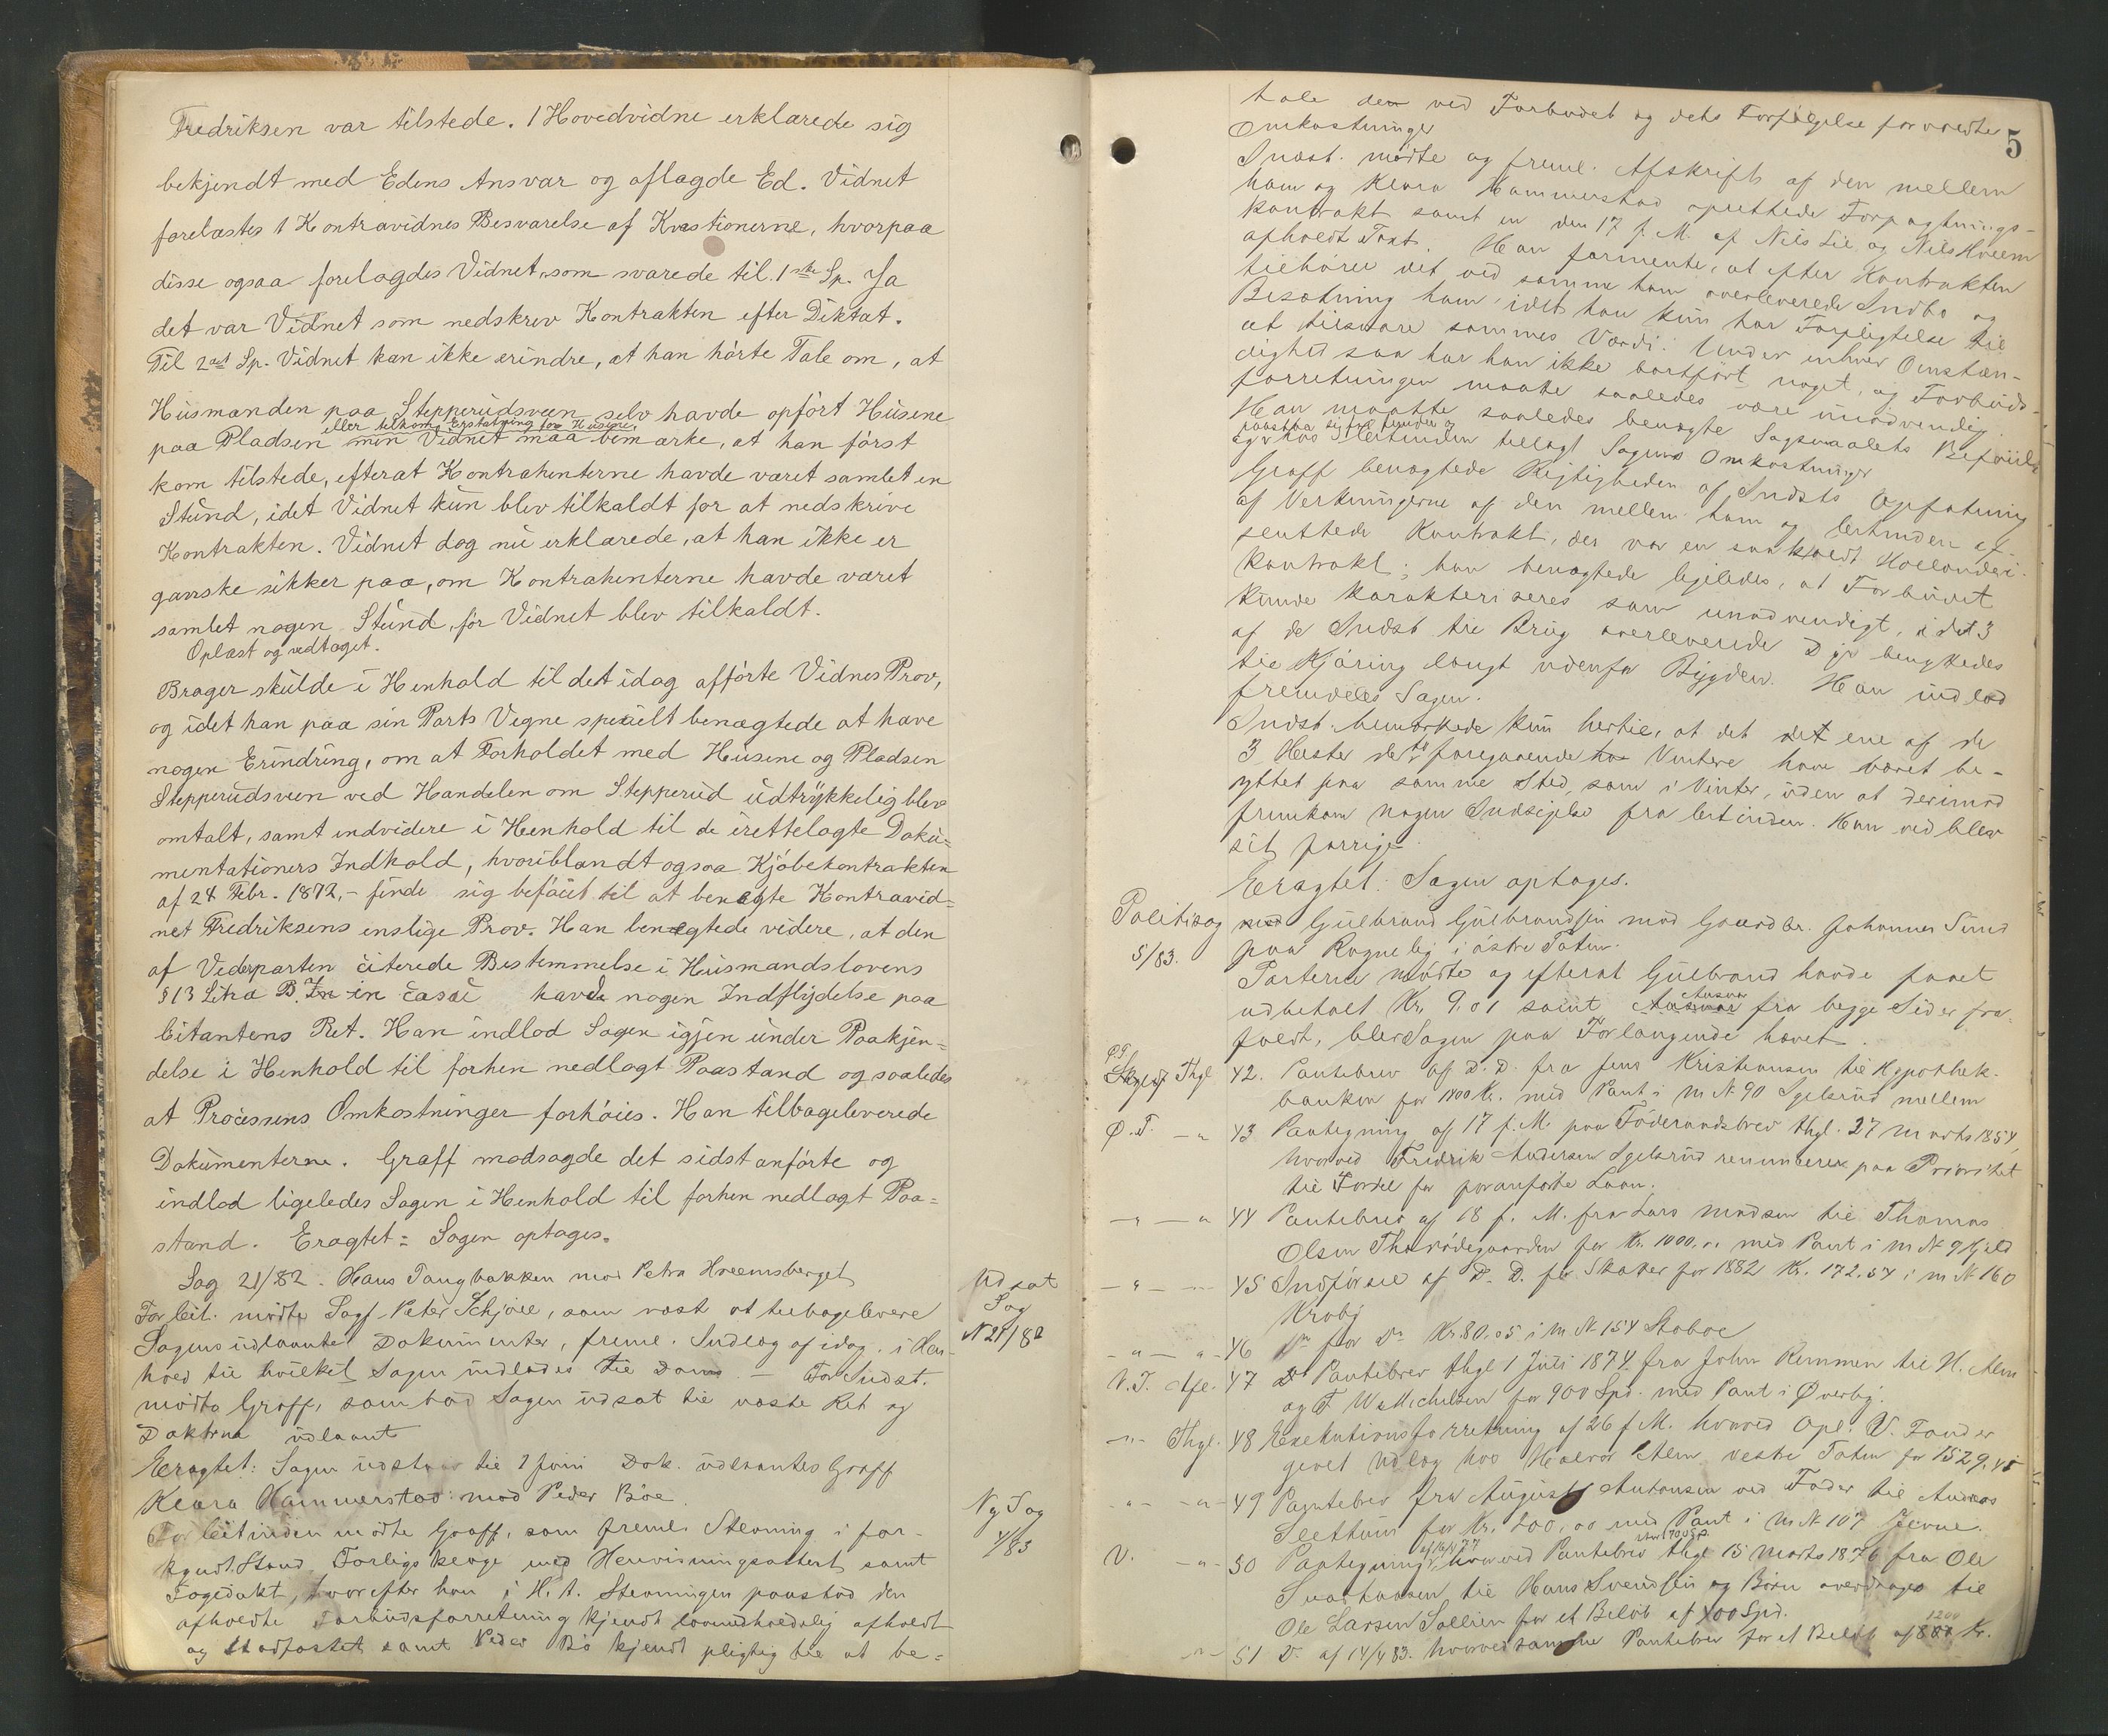 Fredriksen var tilstede. 1 Hovedvidne erklærede sig
bekjendt med Edens Ansvar og aflagde Ed. Vidnet
forelæstes 1 Kontravidnes Besvarelse af Kvæstionerne, hvorpaa
disse ogsaa forelagdes Vidnet, som svarede til 1ste Sp. Ja
det var Vidnet som nedskrev Kontrakten efter Diktat.
Til 2det Sp. Vidnet kan ikke erindre, at han hørte Tale om, at
Husmanden paa Stepperudsveen selv havde opført Husene
eller tilkom Erstatning for Husene,
paa Pladsen men Vidnet maa bemærke, at han først
kom tilstede, efterat Kontrahenterne havde været samlet en
Stund, idet Vidnet kun blev tilkaldt for at nedskrive
Kontrakten. Vidnet dog nu erklærede, at han ikke er
ganske sikker paa, om Kontrahenterne havde været
samlet nogen Stund, før Vidnet blev tilkaldt.
Oplæst og vedtaget.
Brager skulde i Henhold til det idag afførte Vidnes Prov,
og idet han paa sin Parts Vegne specielt benægtede at have
nogen Erindring, om at Forholdet med Husene og Pladsen
Stepperudsveen ved Handelen om Stepperud udtrykkelig blev
omtalt, samt endvidere i Henhold til de irettelagte Doku=
mentationers Indhold, hvoriblandt ogsaa Kjøbekontrakten
af 24 Febr. 1872,- finde sig beføiet til at benægte Kontravid=
net Fredriksens enslige Prov. Han benægtede videre, at den
af Vederparten citerede Bestemmelse i Husmandslovens
§ 13 Litra B. In in casu havde nogen Indflydelse paa
Citantens Ret. Han indlod Sagen igjen under Paakjen=
delse i Henhold til forhen nedlagt Paastand og saaledes
at Processens Omkostninger forhøies. Han tilbageleverede
Dokumenterne. Graff modsagde det sidst anførte og
indlod ligeledes Sagen i Henhold til forhen nedlagt Paa=
stand. Eragtet: Sagen optages.
Sag 21/82. Hans Taugbakken mod Petra Hveemsberget
Udsat
Sag
N 21/82
For Cit. mødte Sagf. Peter Schjøll, som næst at tilbagelevere
Sagens udlaante Dokumenter, freml. Indlæg af idag, i Hen-
hold til hvilket Sagen indlodes til Doms. - For Indst.
mødte Graff, som bad Sagen udsat til næste Ret og
Doktrne udlaant
Eragtet: Sagen udstaar til 1 Juni Dok. udlaantes Graff
Klara Hammerstad mod Peder Bøe.
Ny Sag
4/83
For Citinden mødte Graff, som freml. Stevning i for-
kyndt Stand, Forligsklage med Henvisningsattest samt
Fogedakt, hvorefter han i H. t. Stevningen paastod den
afholdte Forbudsforretning kjendt lovmedholdelig afholdt
og stadfæstet samt Peder Bø kjendt pligtig til at be=
5
tale den ved Forbudet og dets Forfølgelse forvoldte
Omkostninger
Indst. mødte og freml. Afskrift af den mellem
ham og Klara Hammerstad oprettede Forpagtnings-
kontrakt samt en den 17 f. M. af Nils Lie og Nils Hveem
afholdt Taxt. Han formente, at efter Kontrakten
tilhører det ved samme ham overleverede Indbo og
Besætning ham, idet han kun har Forpligtelse til
at tilsvare sammes Værdi. Under enhver Omstæn-
dighed saa har han ikke bortført noget, og Forbuds-
forretningen maatte saaledes være unødvendig.
Han maatte saaledes benægte Sagsmaalets Beføielse
paastaa sig frifunden og
og hos Citinden tillagt Sagens Omkostninger
Graff benægtede Rigtigheden af Indsts Opfatning
af Virkningerne af den mellem ham og Citinden op-
rettede Kontrakt, der var en saakaldt Hollænderi-
kontrakt; han benægtede ligeledes, at Forbudet
kunde karakteriseres som unødvendigt, idet 3
af de Indst til Brug overleverede Dyr benyttedes
til Kjøring langt udenfor Bygden. Han indlod
fremdeles Sagen.
Indst. bemærkede kun hertil, at det det ene af de
3 Heste de to foregaaende Vintere have været be-
nyttet paa samme Sted, som i Vinter, uden at derimod
fremkom nogen Indsigelse fra Citinden. Han vedblev
sit forrige.
Eragtet: Sagen optages.
Politisag
5/83.
mod Gulbrand Gulbrandsen mod Gaardbr. Johannes Sund
paa Rognelig i østre Toten.
Parterne mødte og efterat Gulbrand havde faaet
Ansvar
udbetalt Kr. 9.01 samt Ansvar fra begge Sider fra-
faldt, blev Sagen paa Forlangende hævet.
Thgl 42. Pantebrev af D. D. fra Jens Kristiansen til Hypothek-
banken for 1800 Kr. med Pant i M N 90 Sgelsrud mellem
Ø. T. — " 43 Paategning af 17 f. M. paa Føderaadsbrev thgl. 27 Marts 1854,
hvorved Fredrik Andersen Sgelsrud renuncerer paa Prioritet
til Fordel for foranførte Laan.
— " — " 44 Pantebrev af 18 f. M. fra Lars Madsen til Thomas
Olsen Thorødegaarden for Kr. 1000,00 med Pant i M N 9
— " — " 45 Indførsel af D. D. for Skatter for 1882 Kr. 172.54 i M N 160
Kraby
— " — " 46 Do for Do Kr. 80,05 i M N 154 Staboe
V. T. Afl. 47 Pantebrev thgl 1 Juli 1874 fra John Kemmen til H. Alm
og F W Michelsen for 900 Spd. med Pant i Øverby.
— " — Thgl. 48 Exekutionsforretning af 26 f M. hvorved Opl. V. Fonder
givet Udlæg hos Halvor Alm vestre Toten for 1529,45
— " — " 49 Pantebrev fra August Antonsen ved Foder til Andreas
Sletthum for Kr. 200,00 med Pant i M N 107 Jevne.
V. — " 50 Paategning hvorved Pantebrev thgl 15 Marts 1876 fra Ole
til Hans Svendsen og Børn overdrages til
Ole Larsen Sollien for et Beløb af 400 Spd.
1200
— " 51 D. af 14/4 83. hvorved samme Pantebrev for et Beløb af Kr.